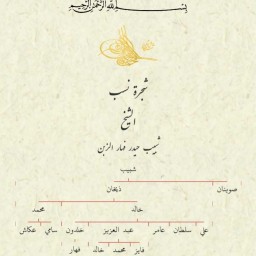 بسم الله الرحمن الرحيم
شجرة نسب
الشيخ
شبيب حيدر فهار الزبن
شبيب
صويتان ذيخان
خالد محمد
علي سلطان عامر عبد العزيز خلدون سامي عكاش
فايز محمد خالد فهار